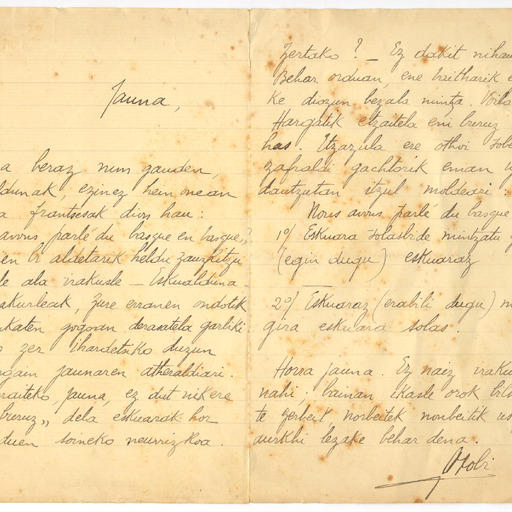 Jauna,
a beraz nun gauden,
dunak, ezinez hein onean
a frantsesak dion hau:
avons parlé du basque en basque"?
en bi aldetarik heldu zauzkitzu
le ala irakusle — Eskualduna
akurleak, zure erranen ondotik
katen gogoan derasatela garbiki
zer ihardetsiko duzun
gain jaunaren atheraldiari.
raiteko, jauna, ez dut nik ere
buruz" dela eskuarak hor
duen soineko neurrizkoa.
Zertako? — Ez dakit nihau
Behar orduan, ene baitharik e
ke duzun bezala mintza. Voila
Hargatik etzaitela eni buruz
has. Etzazula ere othoi sobe
zafraldi gachtorik eman
dautzutan itzul moldeari:
Nous avons parlé du basque
1º/ Eskuara solasbide mintzatu g
(egin dugu) eskuaraz
2º/ Eskuaraz (erabili dugu) m
gira eskuara solas.
Horra jauna. Ez naiz iraku
nahi, bainan ikasle orok bil
te zerbeit norbeitek nonbeitik us
aurkhi lezake behar dena.